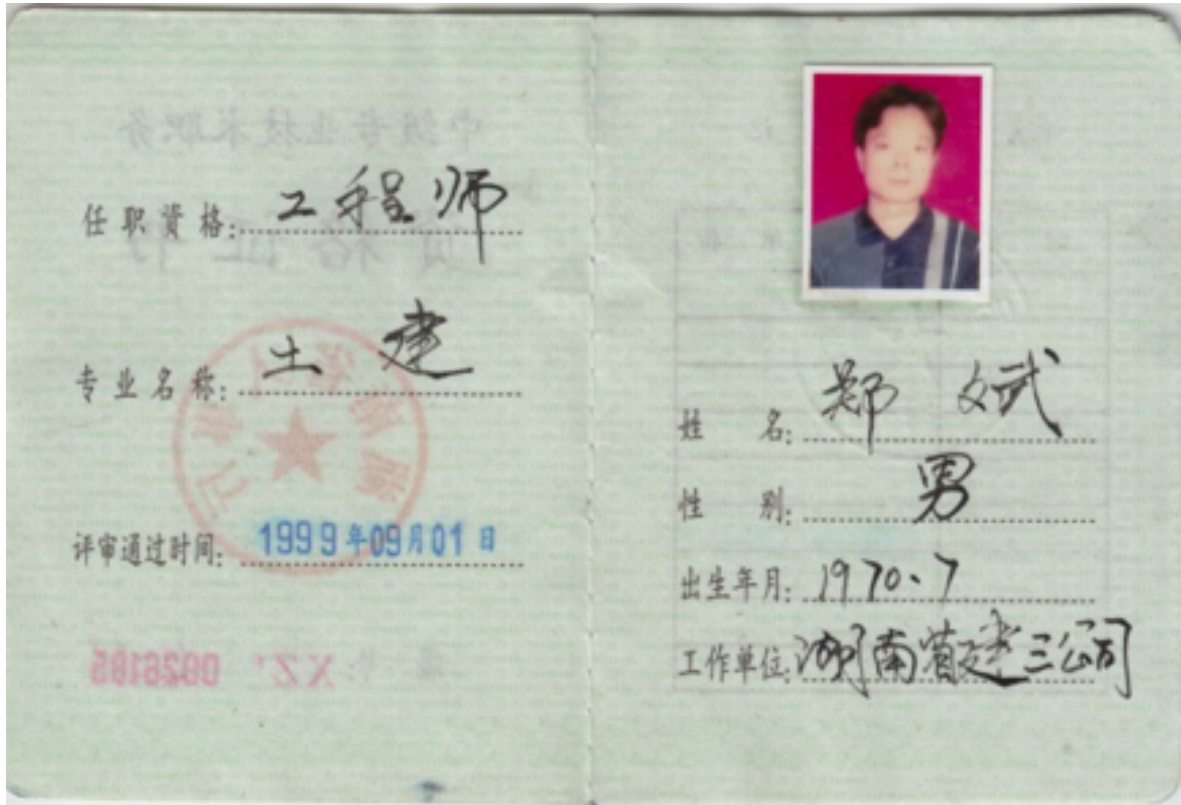 中级专业技术职务
任职资格: 工程师
资格证书
专业名称: 土建
评审通过时间: 1999年09月01日
姓 名: 郑斌
性 别: 男
出生年月: 1970.7
工作单位: 湖南省建三公司